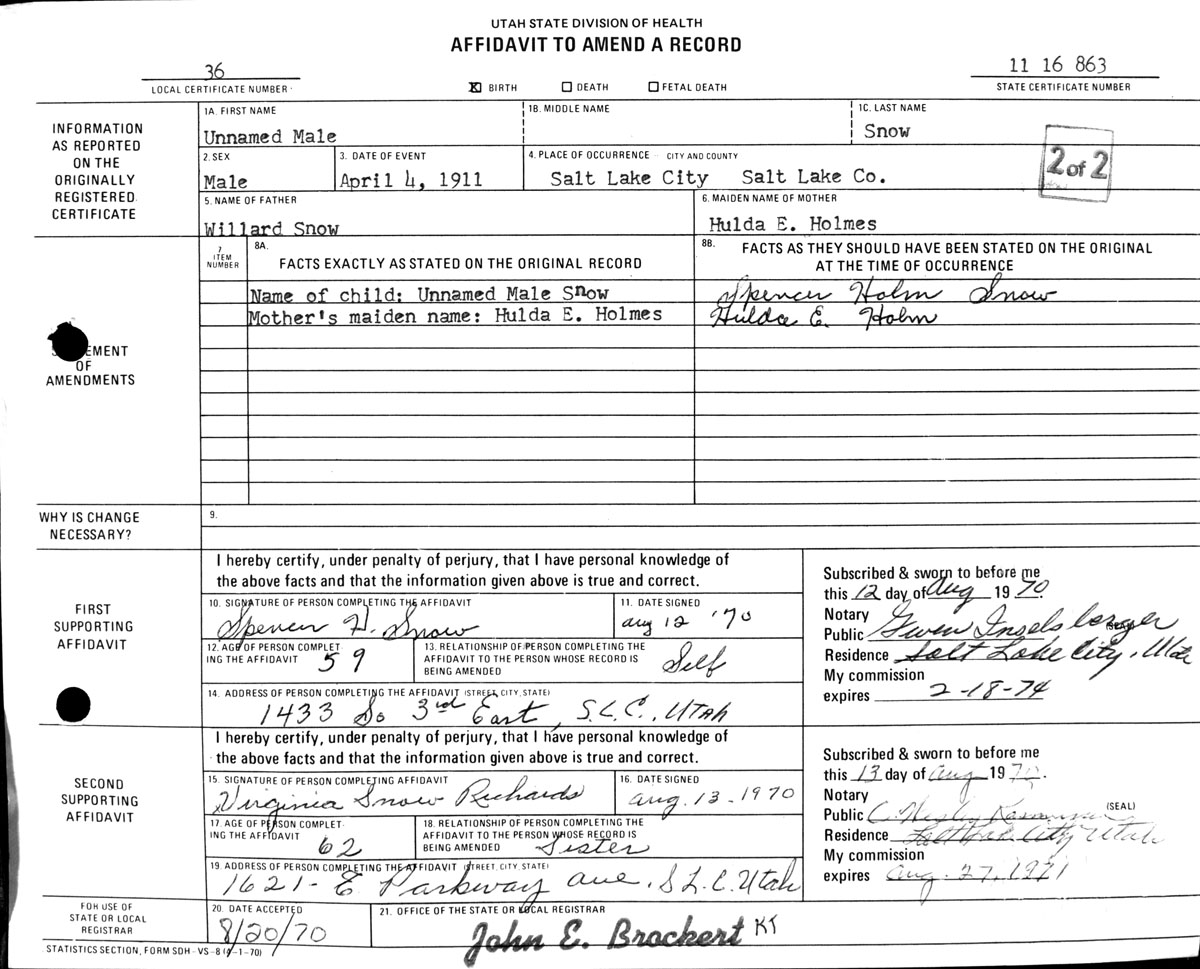 UTAH STATE DIVISION OF HEALTH
AFFIDAVIT TO AMEND A RECORD
36
LOCAL CERTIFICATE NUMBER
X BIRTH DEATH FETAL DEATH
11 16 863
STATE CERTIFICATE NUMBER
INFORMATION
AS REPORTED
ON THE
ORIGINALLY
REGISTERED
CERTIFICATE
1A. FIRST NAME
Unnamed Male
1B. MIDDLE NAME
1C. LAST NAME
Snow
2. SEX
Male
3. DATE OF EVENT
April 4, 1911
4. PLACE OF OCCURRENCE - CITY AND COUNTY
Salt Lake City Salt Lake Co.
2 of 2
5. NAME OF FATHER
Willard Snow
6. MAIDEN NAME OF MOTHER
Hulda E. Holmes
OF
AMENDMENTS
7
ITEM
NUMBER
8A.
FACTS EXACTLY AS STATED ON THE ORIGINAL RECORD
8B. FACTS AS THEY SHOULD HAVE BEEN STATED ON THE ORIGINAL
AT THE TIME OF OCCURRENCE
Name of child: Unnamed Male Snow
Spencer Holm Snow
Mother's maiden name: Hulda E. Holmes
Hulda E. Holm
WHY IS CHANGE
NECESSARY?
9.
FIRST
SUPPORTING
AFFIDAVIT
I hereby certify, under penalty of perjury, that I have personal knowledge of
the above facts and that the information given above is true and correct.
10. SIGNATURE OF PERSON COMPLETING THE AFFIDAVIT
Spencer H. Snow
11. DATE SIGNED
Aug 12 '70
12. AGE OF PERSON COMPLET
ING THE AFFIDAVIT 59
13. RELATIONSHIP OF PERSON COMPLETING THE
AFFIDAVIT TO THE PERSON WHOSE RECORD IS
BEING AMENDED Self
14. ADDRESS OF PERSON COMPLETING THE AFFIDAVIT (STREET, CITY, STATE)
1433 So 3rd East, S.L.C., Utah
Subscribed & sworn to before me
this 12 day of Aug 1970
Notary
Public Gwen Inselsberger (SEAL)
Residence Salt Lake City, Utah
My commission
expires 2-18-74
SECOND
SUPPORTING
AFFIDAVIT
I hereby certify, under penalty of perjury, that I have personal knowledge of
the above facts and that the information given above is true and correct.
15. SIGNATURE OF PERSON COMPLETING AFFIDAVIT
Virginia Snow Richards
16. DATE SIGNED
Aug. 13-1970
17. AGE OF PERSON COMPLET-
ING THE AFFIDAVIT
62
18. RELATIONSHIP OF PERSON COMPLETING THE
AFFIDAVIT TO THE PERSON WHOSE RECORD IS
BEING AMENDED Sister
19. ADDRESS OF PERSON COMPLETING THE AFFIDAVIT (STREET, CITY, STATE)
1621- E Parkway Ave. S L. C. Utah
Subscribed & sworn to before me
this 13 day of Aug 1970.
Notary
Public C. (SEAL)
Residence Salt Lake City Utah
My commission
expires Aug. 27, 1971
FOR USE OF
STATE OR LOCAL
REGISTRAR
20. DATE ACCEPTED
8/20/70
21. OFFICE OF THE STATE OR LOCAL REGISTRAR
John E. Brockert KT
STATISTICS SECTION, FORM SDH-VS-8 (4-1-70)